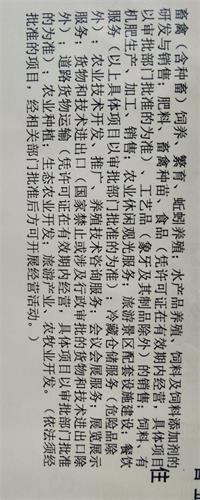 畜禽（含种畜）饲养、繁育、蚯蚓养殖；水产品养殖、饲料及饲料添加剂的
研发与销售；肥料、畜禽种苗、食品（凭许可证在有效期内经营，具体项目
以审批部门批准的为准）、工艺品（象牙及其制品除外）的销售；饲料、有
机肥生产、加工、销售；农业休闲观光服务；旅游景区配套设施建设；餐饮
服务（以上具体项目以审批部门批准的为准）；冷藏仓储服务（危险品除
外）；农业技术开发、推广、养殖技术咨询服务；会议会展服务；展览展示
服务；货物和技术进出口（国家禁止或涉及行政审批的货物和技术进出口除
外）；道路货物运输（凭许可证在有效期内经营，具体项目以审批部门批准
的为准）；农业种植；生态农业开发；旅游产业、农牧业开发。（依法须经
批准的项目，经相关部门批准后方可开展经营活动。）
住